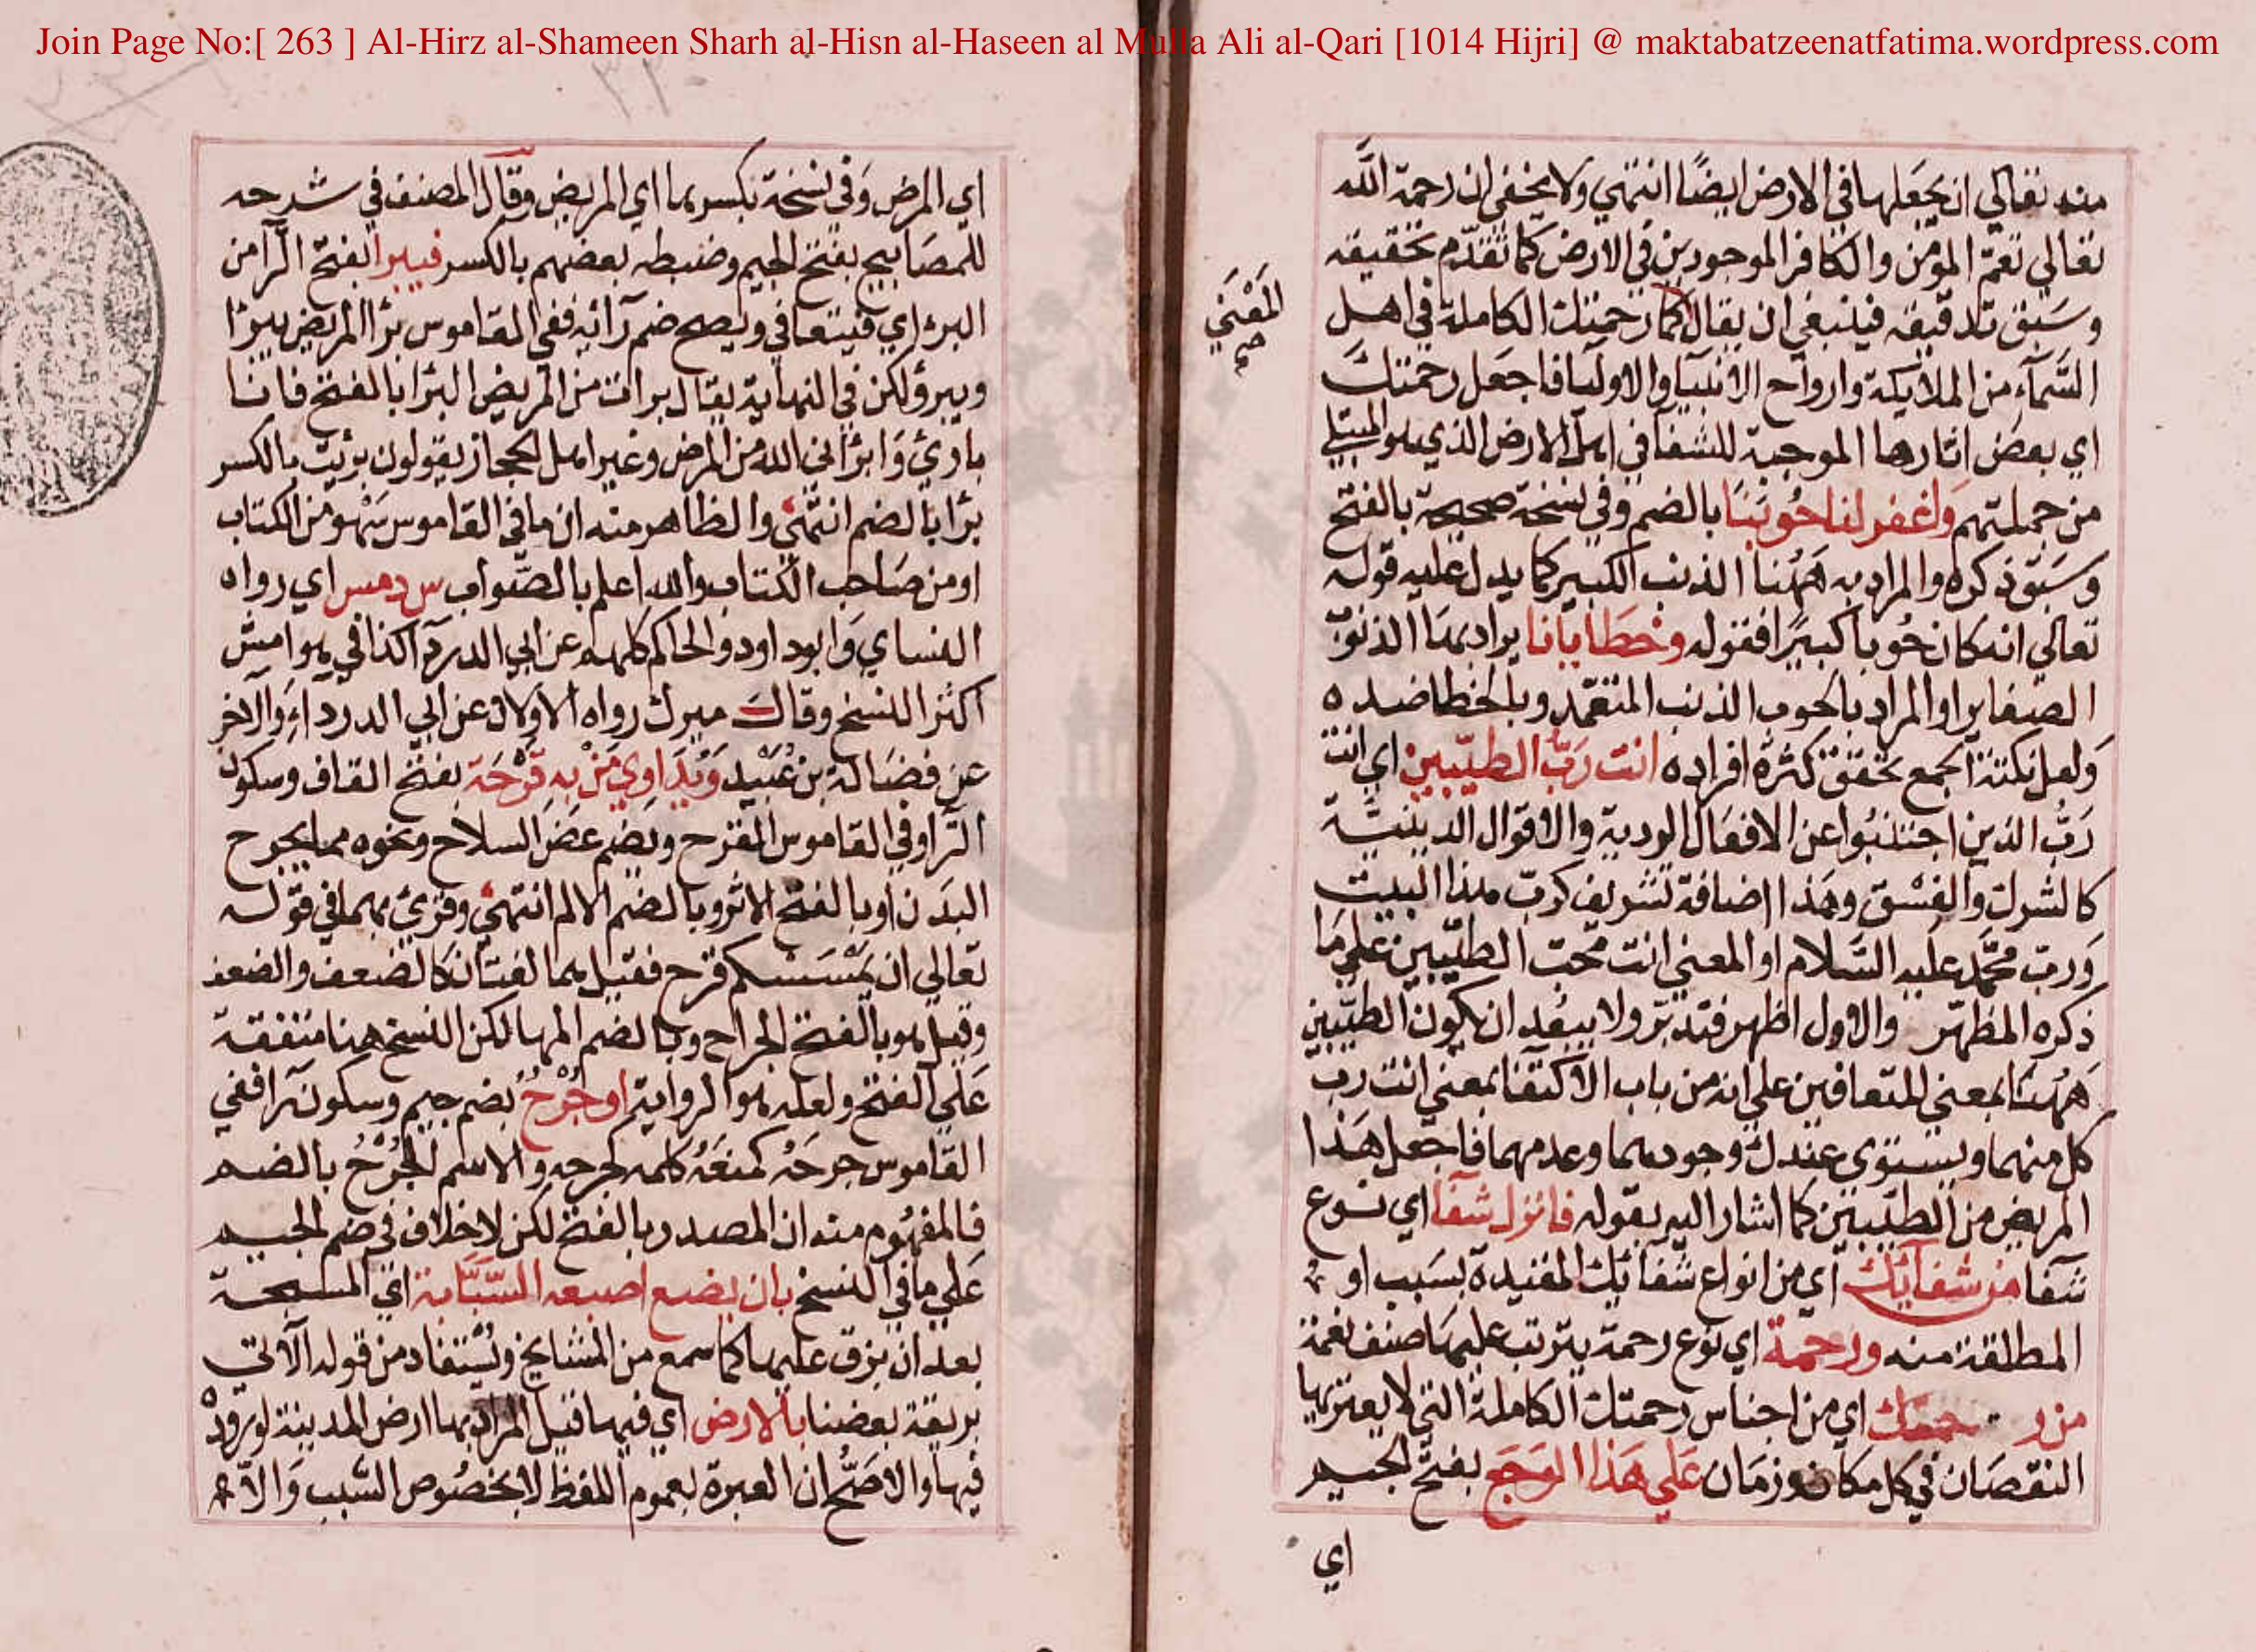 Join Page No:[ 263 ] Al-Hirz al-Shameen Sharh al-Hisn al-Haseen al Mulla Ali al-Qari [1014 Hijri] @ maktabatzeenatfatima.wordpress.com
منه تعالي ان يجعلها في الارض ايضًا انتهي ولا يخفي ان رحمة الله
تعالي تعمّ المؤمن والكافر الموجودين في الارض كما تقدّم تحقيقه
وسَبق تدقيقه فينبغي ان يقال كما رحمتك الكاملة في اهل
المَعْنَي
صح
السَّمآء من الملايكة وارواح الانبيا والاوليا فاجعل رحمتك
اي بعض اثارها الموجبة للشفا في اهل الارض الذي هو المبتلي
من جملتهم واغفر لنا حُوبَنَا بالضم وفي نسخة صحيحة بالفتح
وسَبق ذكره والمراد به هَهُنا الذنب الكبير كما يدل عليه قوله
تعالي انه كان حُوبا كبيرًا فقوله وخطايانا يراد بها الذنوب
الصغاير او المراد بالحوب الذنب المتعمّد وبالخطا ضده
ولعل نكتة الجمع تحقق كثرة افراده انت رَبّ الطيّبين اي انت
رَبُّ الذين اجتنبُوا عن الافعال الردية والاقوال الدينيَّة
كالشرك والفسْق وهذا اضافة تشريف كربّ هذا البيت
وَربّ محمَّد عليه السَّلام او المعني انت محّب الطيّبين علي مَا
ذكره المظهّر والاول اظهر فتدبّر ولا يبعُد ان يكون الطيّبين
هَهُنَا بمعني المتعافين علي انه من باب الاكتفا بمعني انت رب
كل منهما ويستوي عندك وجودهما وعدمهما فاجعل هَذا
المريض من الطيّبين كما اشار اليه بقوله فانزل شفآ اي نوع
شفا من شفآئك اي من انواع شفائك المقيدة بسَبب او
المطلقة منه ورحمة اي نوع رحمة يترتب عليها صنف نعمة
من رحمتك اي من اجناس رحمتك الكاملة التي لا يعتريها
النقصَان في كل مكان وزمَان عَلي هَذا الوَجَع بفتح الجيم
اي
اي المرض وَفي نسخة بكسرها اي المريض وقال المصنف في شرحه
للمصَابيح بفتح الجيم وضبطه بعضهم بالكسر فيبرا بفتح الرآ من
البرء اي فيتعافي ويصح ضم رآئه ففي القاموس برا المريض يبرا
ويبرؤ لكن في النهاية يقال برات من المريض البرا بالفتح فانا
بارئ وَابرَاني الله من المرض وغير اهل الحجاز يقولون برئت بالكسر
برًا بالضم انتهَي والظاهر منه ان ما في القاموس سَهْو من الكتاب
او من صَاحب الكتاب والله اعلم بالصّواب س د مس اي رواه
النساي وَابوداود والحاكم كلهم عن ابي الدردآ كذا في هوامش
اكثر النسخ وقال ميرك رواه الاولان عن ابي الدرداء وَالاخر
عن فضالة بن عُبَيْد وَيُدَاوِي مَنْ به قَرْحَة بفتح القاف وسكون
الرّا وفي القاموس القرح ويضم عَضّ السلاح ونحوه مما يجرح
البدَن او بالفتح الاثر وبالضم الالم انتهَي وقرئ بهما في قوله
تعالي ان يَمْسَسْكم قرح فقيل هما لغتان كالضعف والضعف
وقيل هو بالفتح الجراح وبالضم المها لكن النسخ هنا متفقة
عَلي الفتح ولعله هو الرواية او جُرْحٌ بضم جيم وسكون رآ ففي
القاموس جرحَهُ كمنعَهُ كلمه كجرحه والاسم الجُرْحُ بالضم
فالمفهُوم منه ان المصدر بالفتح لكن لا خلاف في ضم الجيم
عَلي ما في النسخ بان يضع اصبعه السَّبَّابة اي المسبحة
بعد ان بزق عليها كما سمع من المشايخ ويُسْتفاد من قوله الآتي
بريقة بعضنا بالارض اي فيها قيل المراد بها ارض المدينة لورودهْ
فيها والاصَحّ ان العبرة بعموم اللفظ لا بخصُوص السّبب